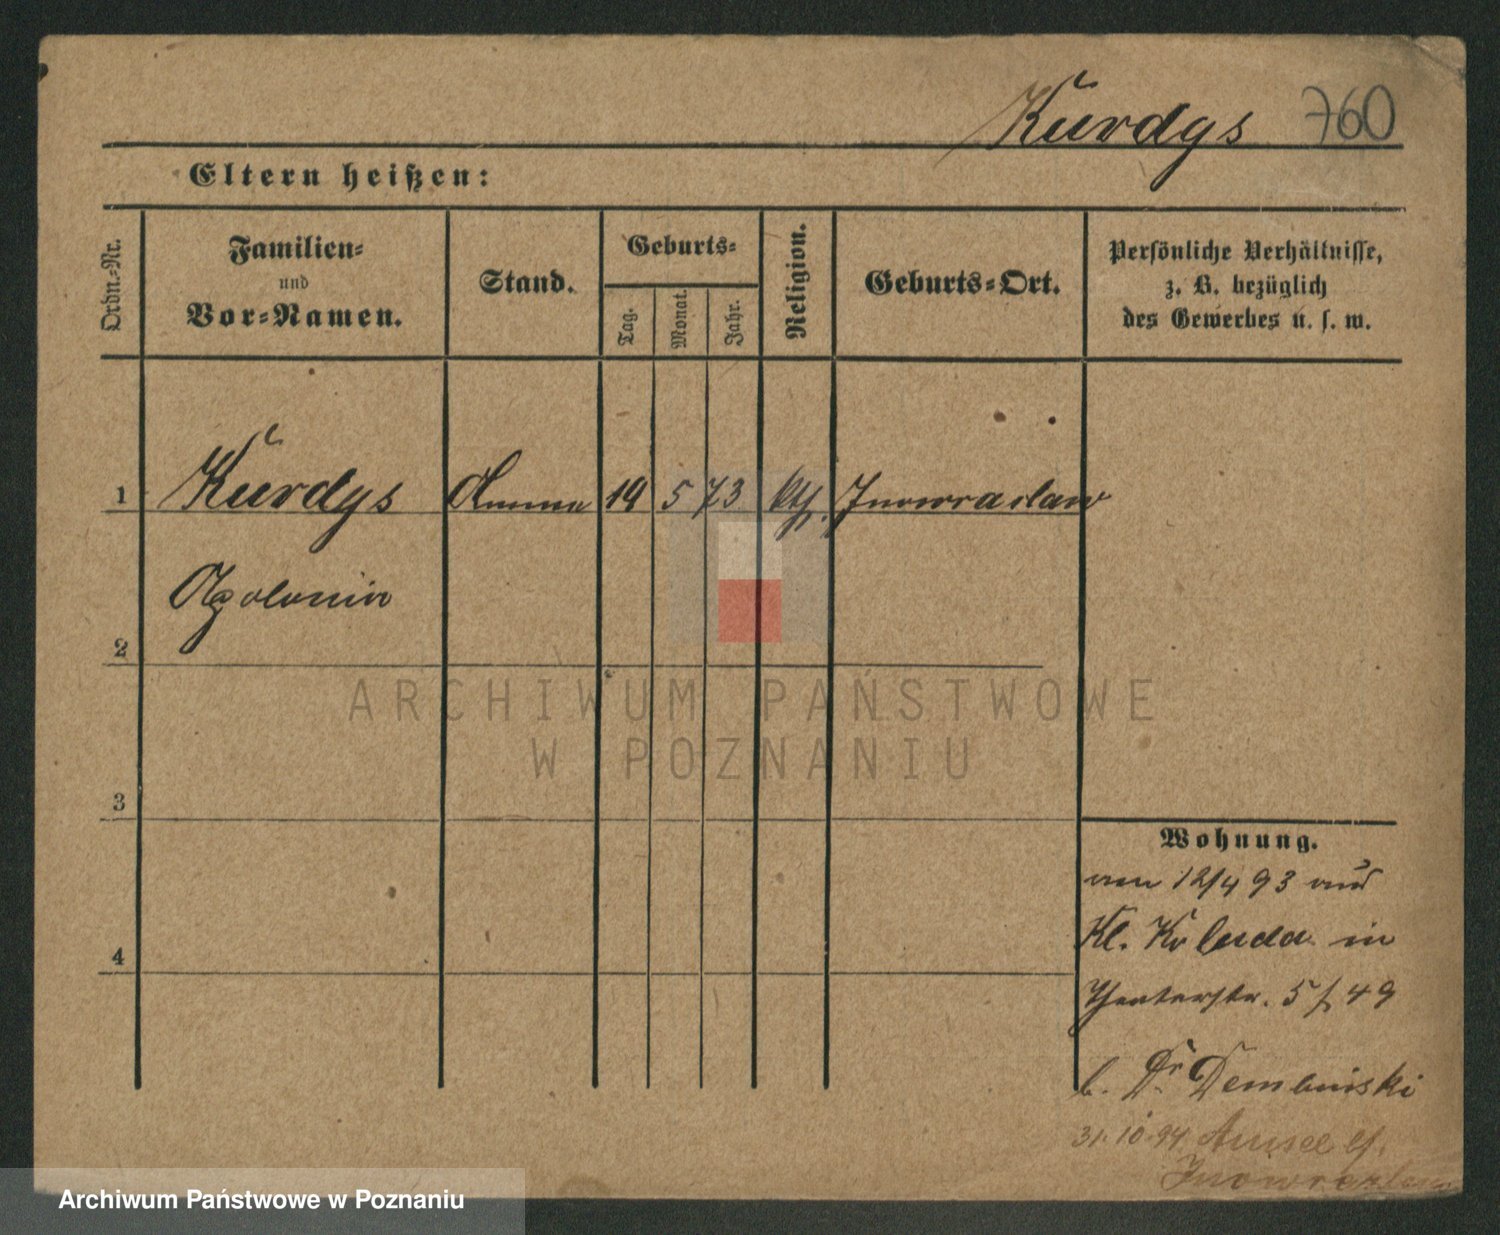 Kurdys 760
Eltern heißen:
Ordn.-Nr.
Familien-
und
Vor-Namen.
Stand.
Geburts-
Tag.
Monat.
Jahr.
Religion.
Geburts-Ort.
Persönliche Verhältnisse,
z. B. bezüglich
des Gewerbes u. s. w.
1 Kurdys Amme 19 5 73 kth. Inowraclaw
Apolonia
2
3
4
ARCHIWUM PAŃSTWOWE
W POZNANIU
Wohnung.
am 12/4 93 aus
Kl. Koluda in
Theaterstr. 5 f 49
b. Dr Dembinski
31.10.94
Inowrazlaw
Archiwum Państwowe w Poznaniu